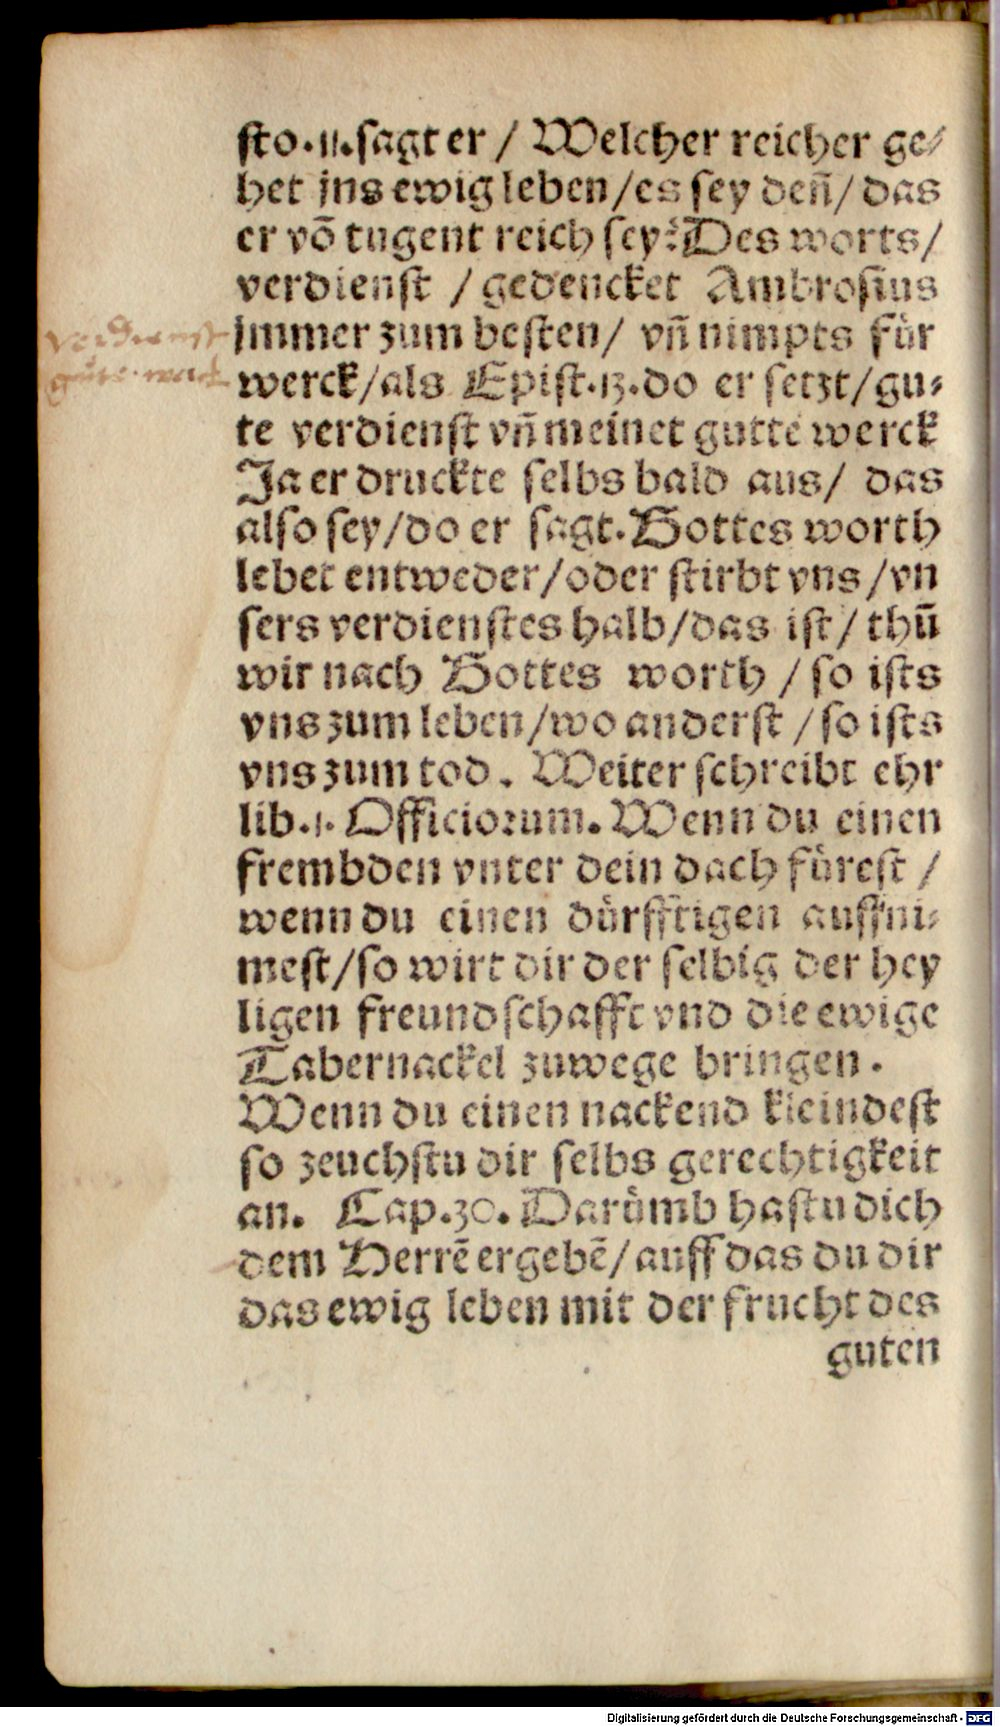 sto.11.sagt er / Welcher reicher ge⸗
het jns ewig leben/es sey deñ/ das
er võ tugent reich sey? Des worts/
verdienst / gedencket Ambrosius
jmmer zum besten/ vñ nimpts für
werck/als Epist.13.do er setzt/gu⸗
te verdienst vñ meinet gutte werck
Ja er druckte selbs bald aus/ das
also sey/do er sagt. Gottes worth
lebet entweder/oder stirbt vns/vn
sers verdienstes halb/das ist/ thũ
wir nach Gottes worth / so ists
vns zum leben/wo anderst / so ists
vns zum tod. Weiter schreibt ehr
lib.1. Officiorum. Wenn du einen
frembden vnter dein dach fürest /
wenn du einen dürfftigen auffni⸗
mest/so wirt dir der selbig der hey
ligen freundschafft vnd die ewige
Tabernackel zuwege bringen.
Wenn du einen nackend kleindest
so zeuchstu dir selbs gerechtigkeit
an. Cap.30. Darümb hastu dich
dem Herrē ergebē/auff das du dir
das ewig leben mit der frucht des
guten
verdienst
gute
Digitalisierung gefördert durch die Deutsche Forschungsgemeinschaft - DFG